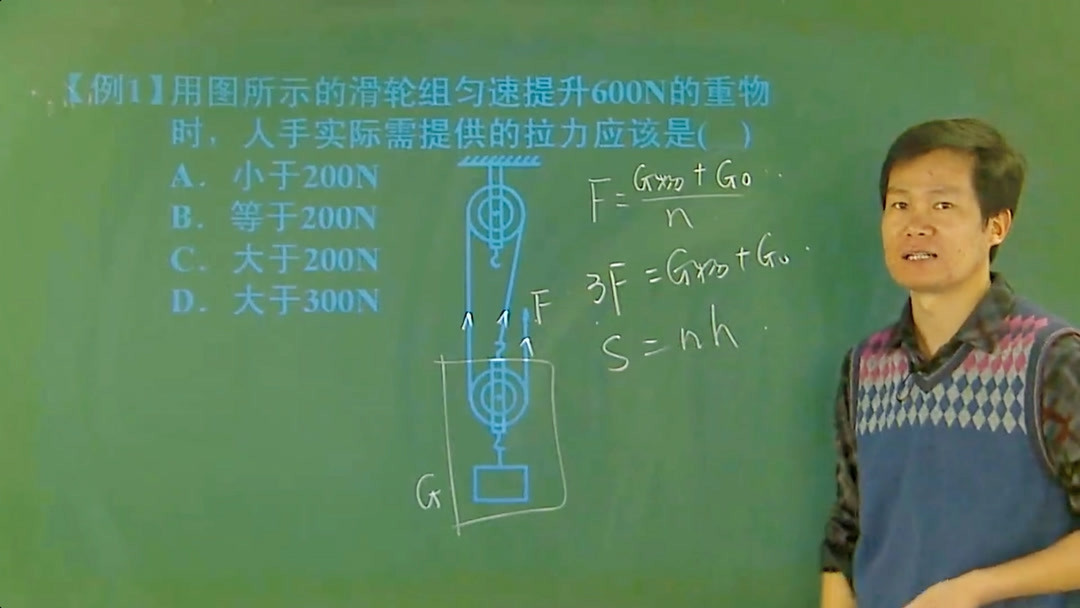 【例1】用图所示的滑轮组匀速提升600N的重物
时，人手实际需提供的拉力应该是(    )
A．小于200N
B．等于200N
C．大于200N
D．大于300N
F = G物 + G₀ / n
F
3F = G物 + G₀
S = nh
G